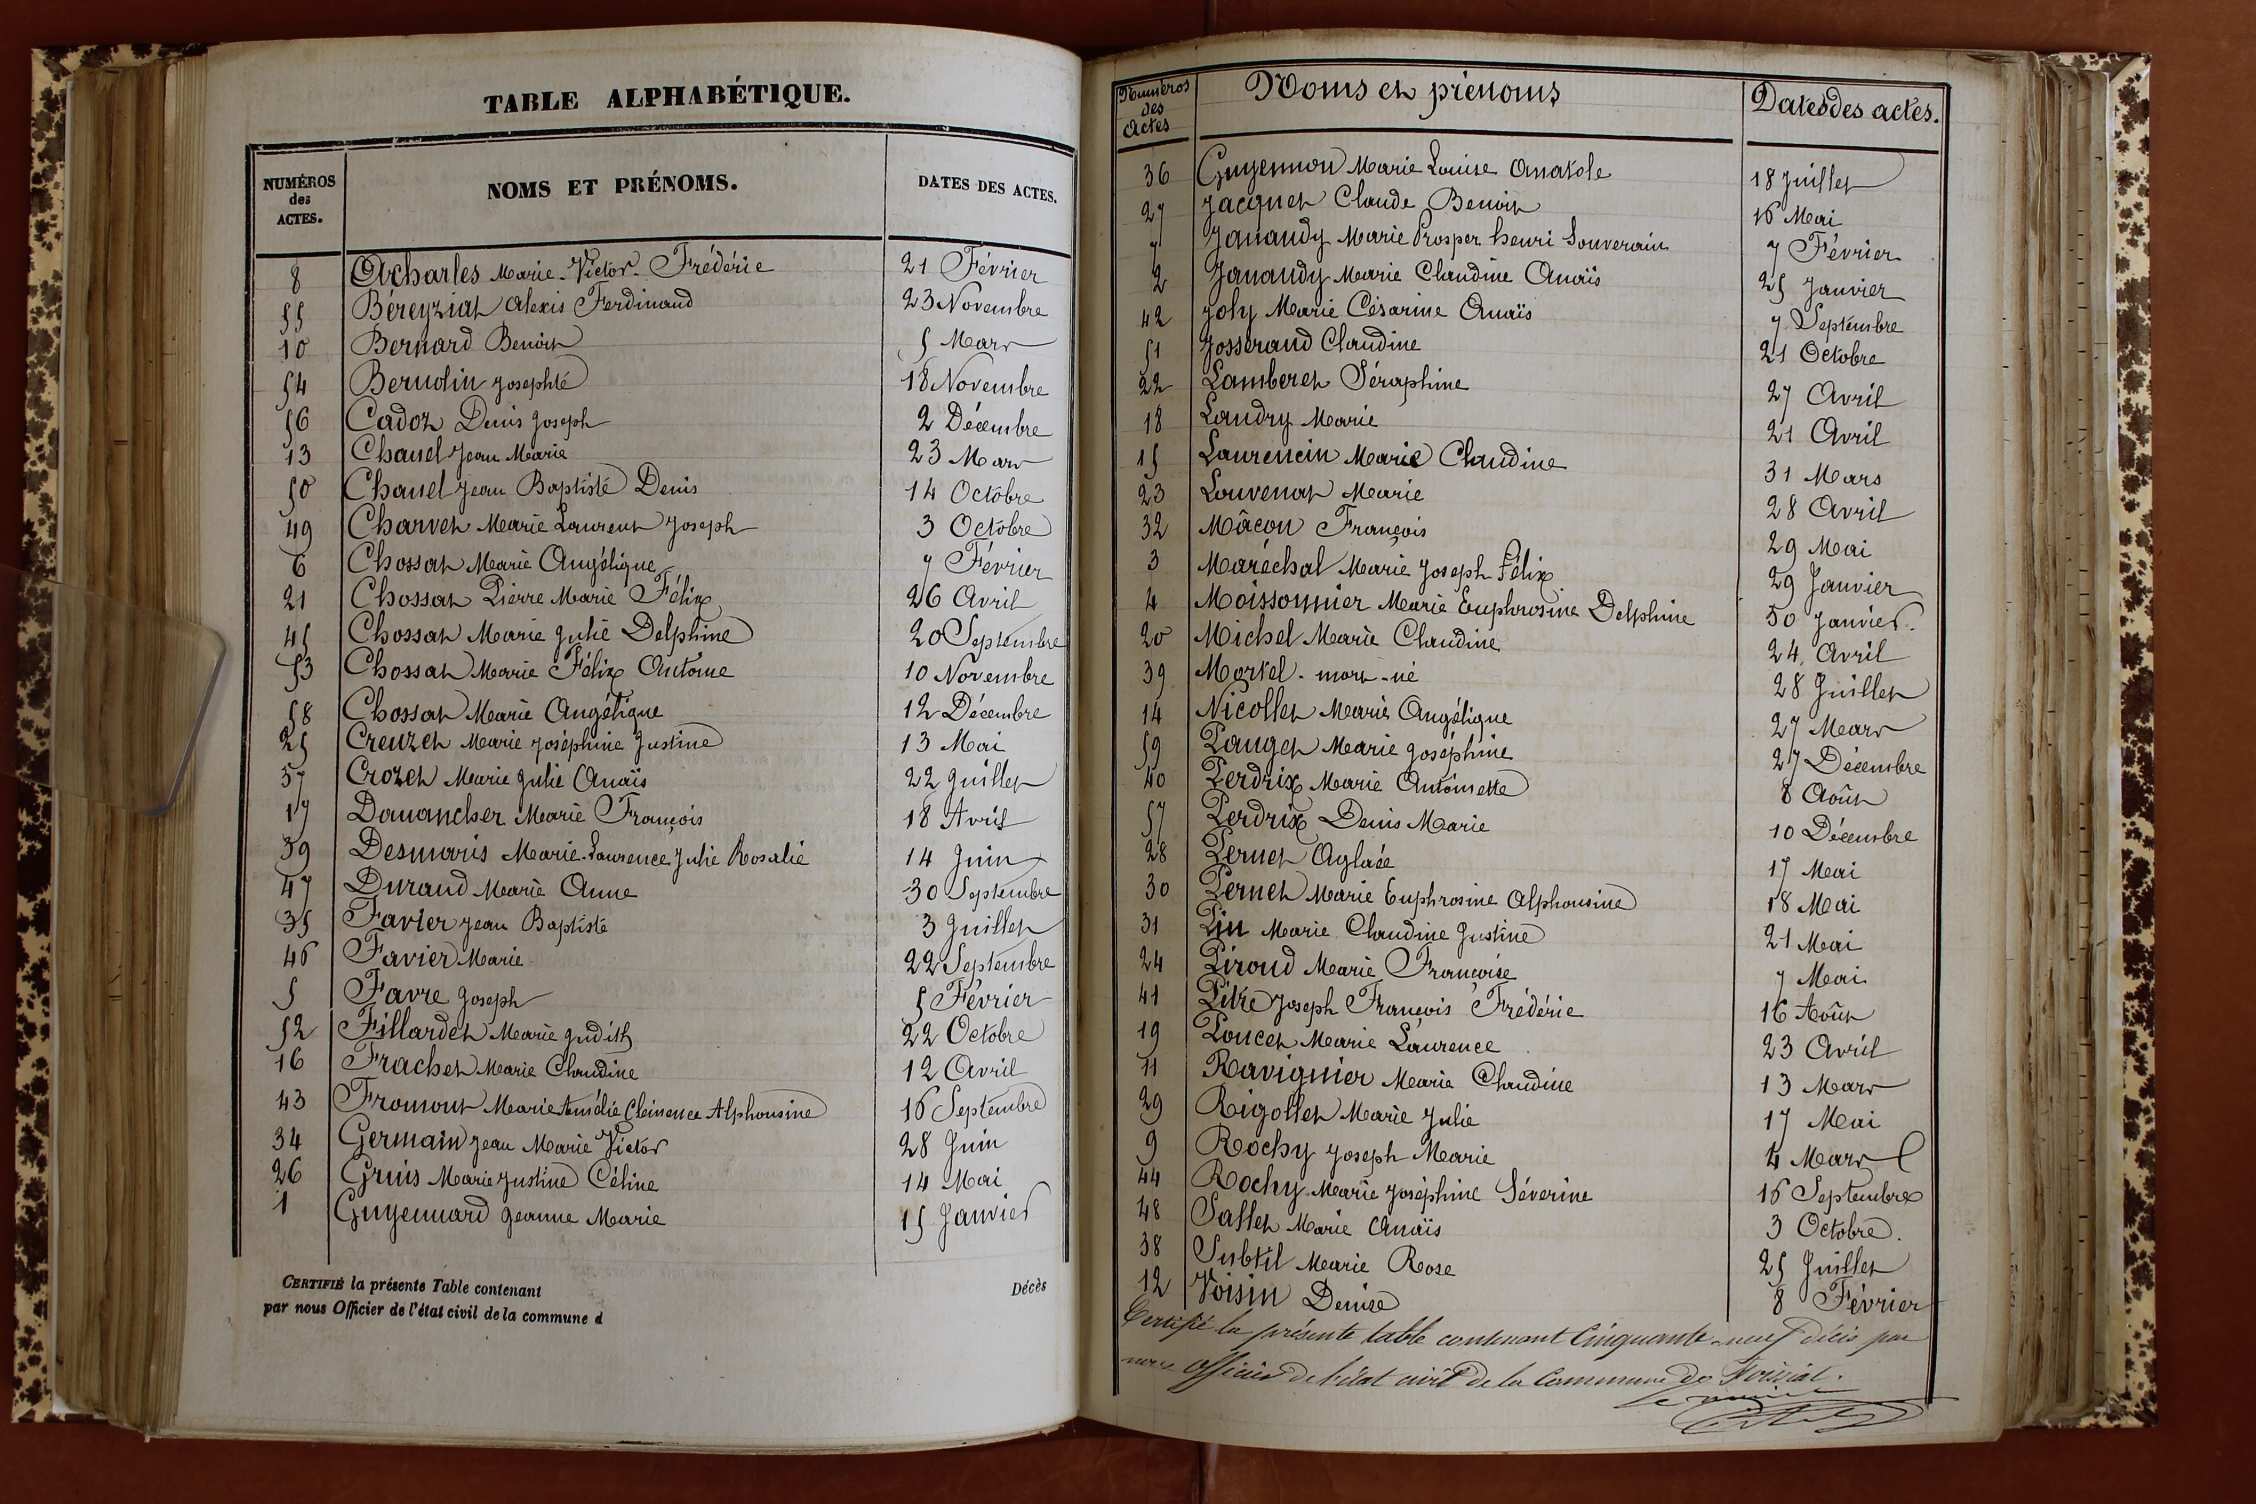 TABLE ALPHABÉTIQUE.
NUMÉROS des ACTES. NOMS ET PRÉNOMS. DATES DES ACTES.
8 Acharles Marie-Victor-Frédéric 21 Février
55 Béreyziat Alexis Ferdinand 23 Novembre
10 Bernard Benoit 5 Mars
54 Bernolin Josephte 18 Novembre
56 Cadoz Denis Joseph 2 Décembre
13 Chanel Jean Marie 23 Mars
50 Chanel Jean Baptiste Denis 14 Octobre
49 Charvet Marie Laurent Joseph 3 Octobre
6 Chossat Marie Angélique 7 Février
21 Chossat Pierre Marie Félix 26 Avril
45 Chossat Marie Julie Delphine 20 Septembre
53 Chossat Marie Félix Antoine 10 Novembre
58 Chossat Marie Angélique 12 Décembre
25 Creuzet Marie Joséphine Justine 13 Mai
37 Crozet Marie Julie Anaïs 22 Juillet
17 Danancher Marie François 18 Avril
39 Desmaris Marie-Laurence Julie Rosalie 14 Juin
47 Durand Marie Anne 30 Septembre
35 Favier Jean Baptiste 3 Juillet
46 Favier Marie 22 Septembre
5 Favre Joseph 5 Février
52 Fillardet Marie Judith 22 Octobre
16 Frachet Marie Claudine 12 Avril
43 Fromont Marie Amélie Clémence Alphonsine 16 Septembre
34 Germain Jean Marie Victor 28 Juin
26 Gruis Marie Justine Céline 14 Mai
1 Guyennard Jeanne Marie 15 Janvier
CERTIFIÉ la présente Table contenant Décès
par nous Officier de l'état civil de la commune d
Numéros des Actes Noms et prénoms Dates des actes.
36 Guyennon Marie Louise Anatole 18 Juillet
27 Jacquet Claude Benoit 16 Mai
7 Janaudy Marie Prosper henri Souverain 7 Février
2 Janaudy Marie Claudine Anaïs 25 Janvier
42 Joly Marie Césarine Anaïs 7 Septembre
51 Josserand Claudine 21 Octobre
22 Lamberet Séraphine 27 Avril
18 Landry Marie 21 Avril
15 Laurencin Marie Claudine 31 Mars
23 Louvenat Marie 28 Avril
32 Mâcon François 29 Mai
3 Maréchal Marie Joseph Félix 29 Janvier
4 Moissonnier Marie Euphrosine Delphine 30 Janvier.
20 Michel Marie Claudine 24 Avril
39 Mortel - mort-né 28 Juillet
14 Nicollet Marie Angélique 27 Mars
59 Pauget Marie Joséphine 27 Décembre
40 Perdrix Marie Antoinette 8 Août
57 Perdrix Denis Marie 10 Décembre
28 Pernet Aglaée 17 Mai
30 Pernet Marie Euphrosine Alphonsine 18 Mai
31 Pin Marie Claudine Justine 21 Mai
24 Piroud Marie Françoise 7 Mai
41 Pitre Joseph François Frédéric 16 Août
19 Poncet Marie Laurence 23 Avril
11 Ravignier Marie Claudine 13 Mars
29 Rigollet Marie Julie 17 Mai
9 Rochy Joseph Marie 4 Mars
44 Rochy Marie Joséphine Séverine 16 Septembre
48 Sallet Marie Anaïs 3 Octobre.
38 Subtil Marie Rose 25 Juillet
12 Voisin Denise 8 Février
Certifié la présente table contenant Cinquante-neuf décès par
nous Officier de l'état civil de la Commune de Foissiat.
Le maire